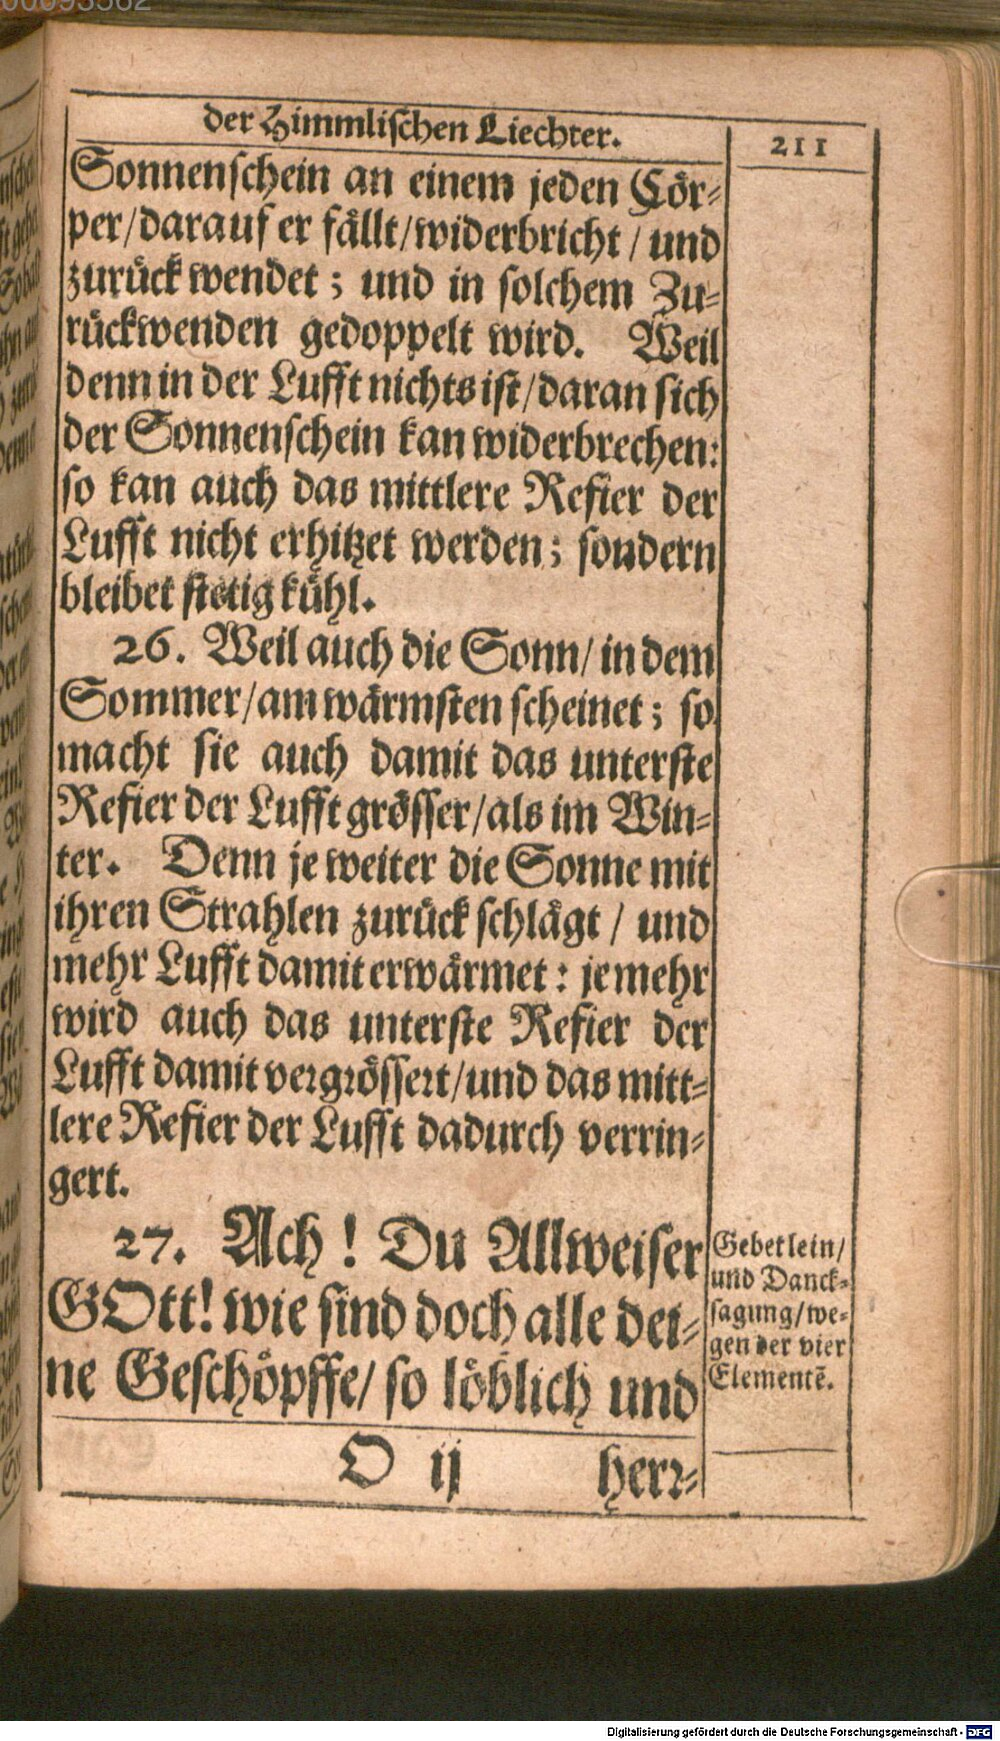 der Himmlischen Liechter.
211
Sonnenschein an einem jeden Cör-
per/darauf er fällt/widerbricht / und
zurück wendet; und in solchem Zu-
rückwenden gedoppelt wird. Weil
denn in der Lufft nichts ist/daran sich
der Sonnenschein kan widerbrechen:
so kan auch das mittlere Refier der
Lufft nicht erhitzet werden; sondern
bleibet stetig kühl.
26. Weil auch die Sonn/ in dem
Sommer/am wärmsten scheinet; so
macht sie auch damit das unterste
Refier der Lufft grösser/als im Win-
ter. Denn je weiter die Sonne mit
ihren Strahlen zurück schlägt / und
mehr Lufft damit erwärmet: je mehr
wird auch das unterste Refier der
Lufft damit vergrössert/und das mitt-
lere Refier der Lufft dadurch verrin-
gert.
27. Ach! Du Allweiser
GOtt! wie sind doch alle dei-
ne Geschöpffe/ so löblich und
Gebetlein/
und Danck-
sagung/we-
gen der vier
Elementē.
O ij herr-
Digitalisierung gefördert durch die Deutsche Forschungsgemeinschaft - DFG